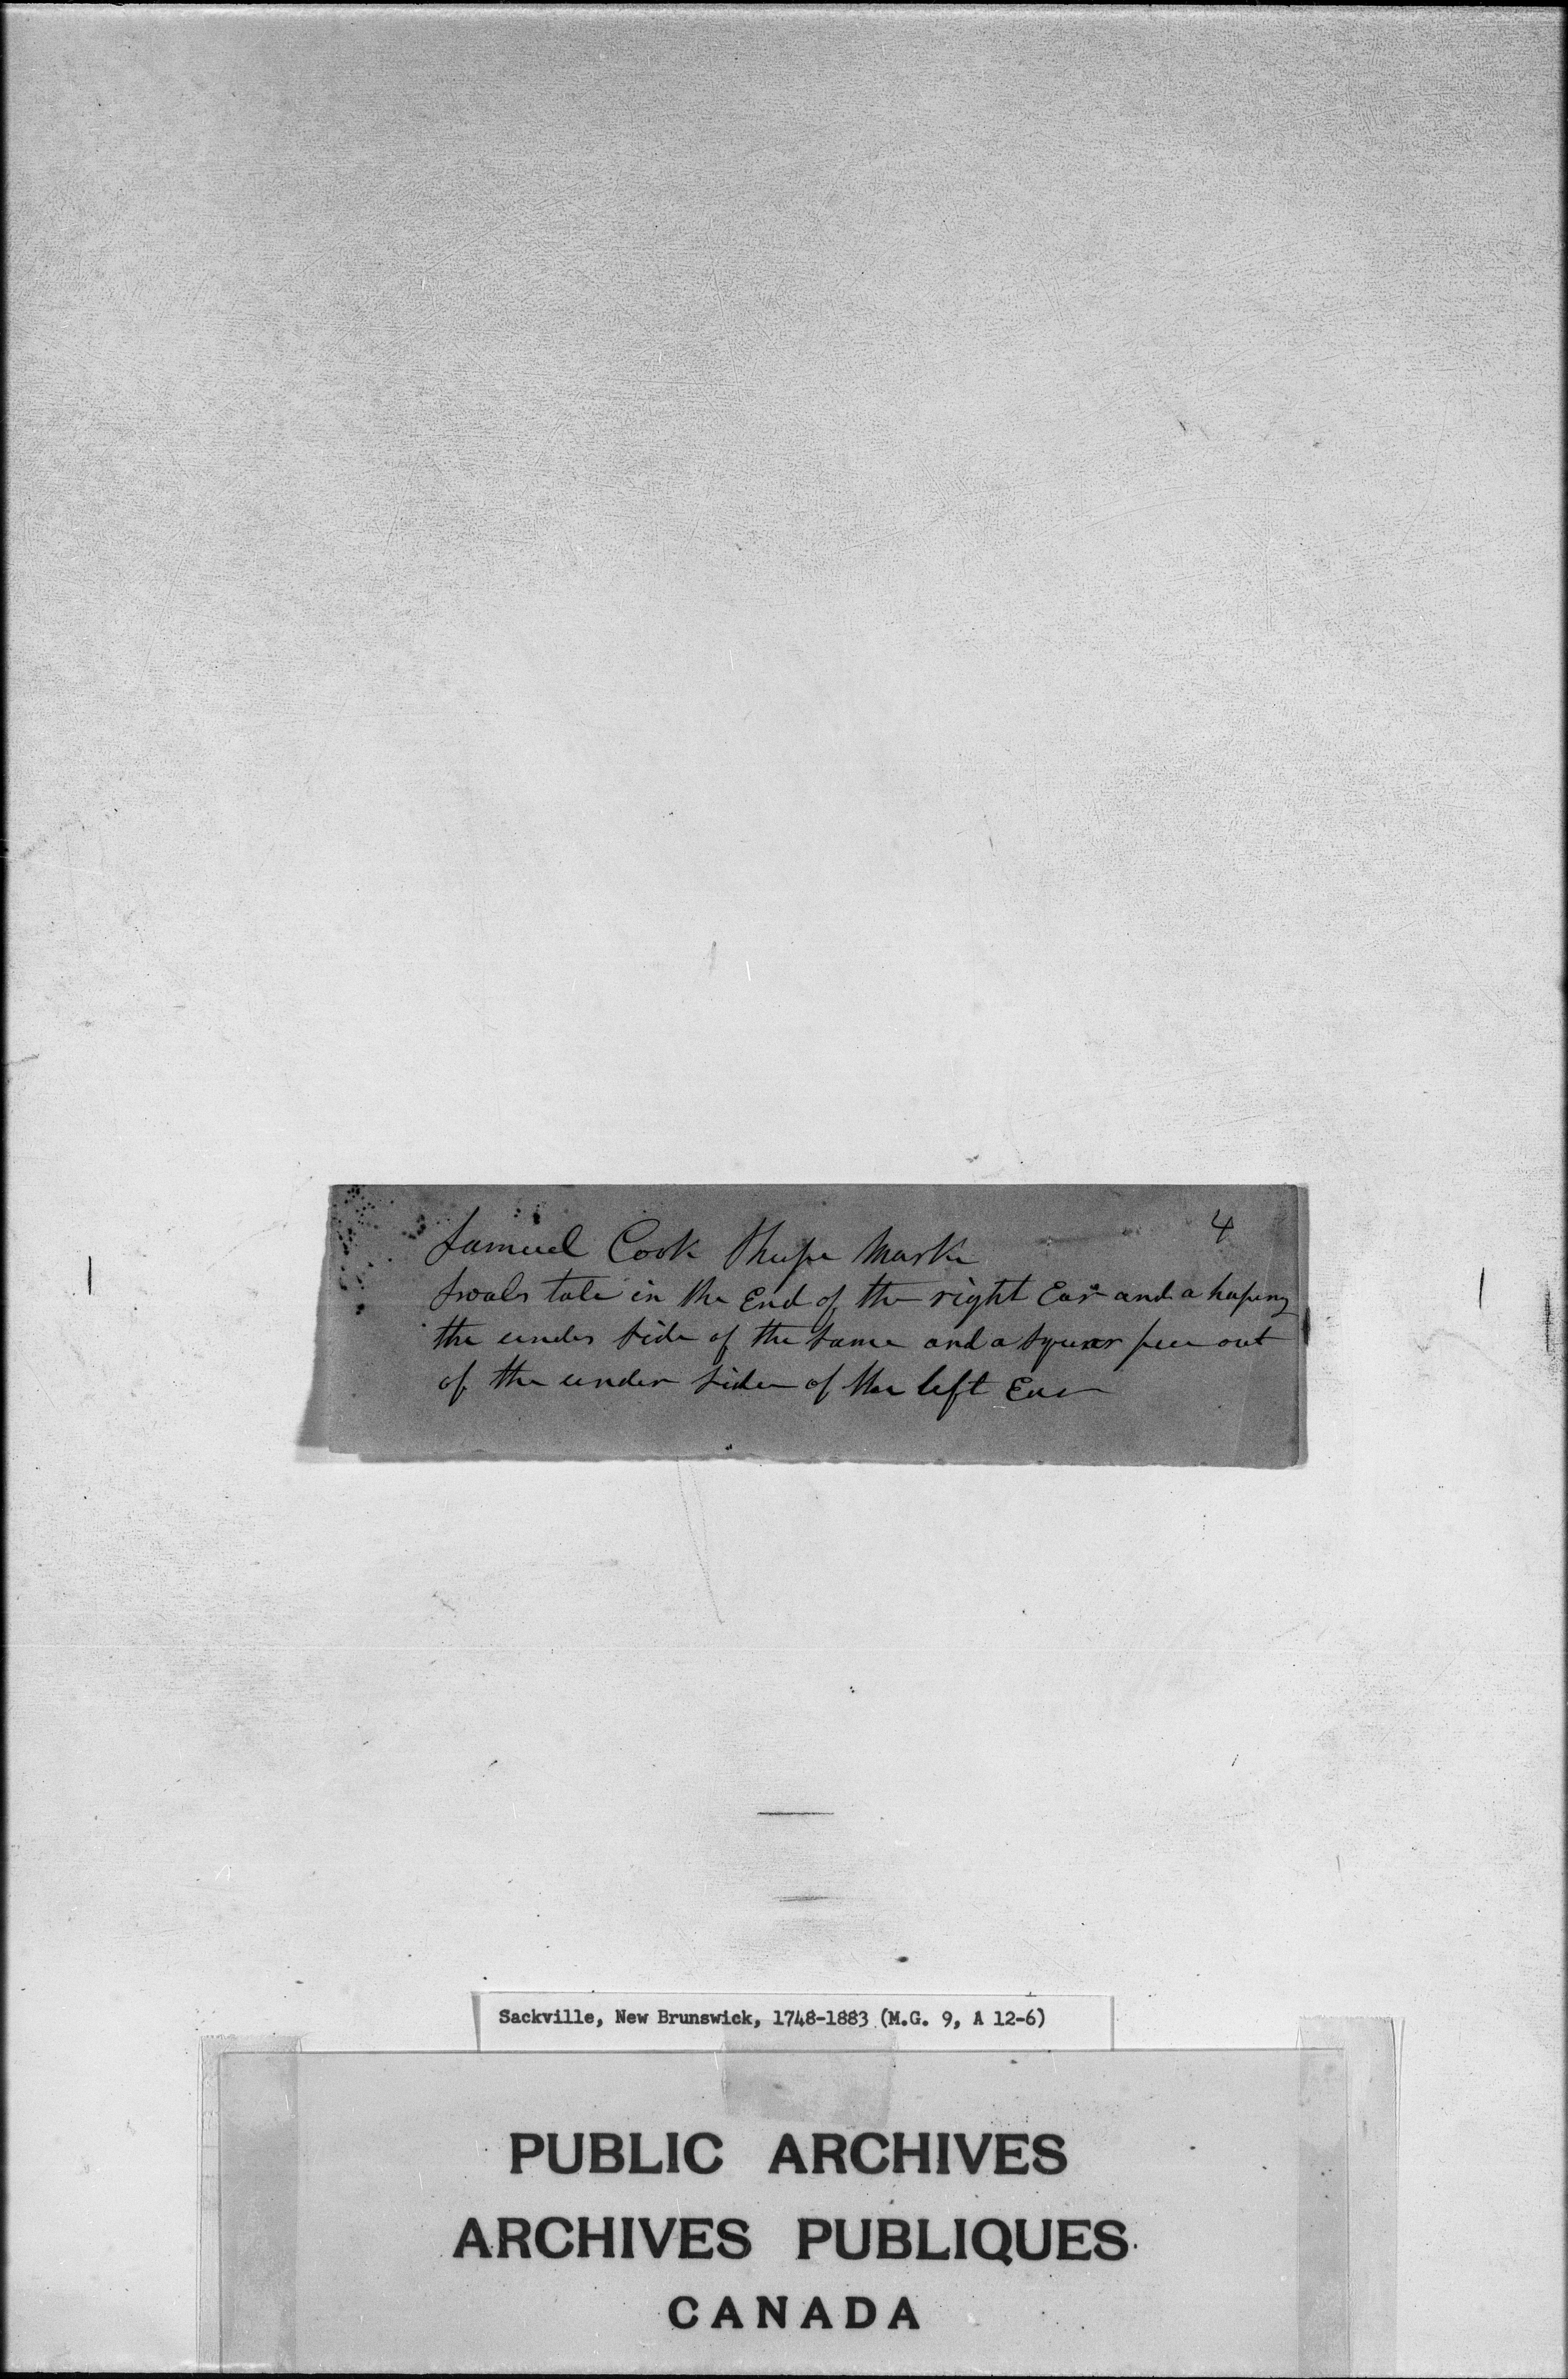 4
Samuel Cook Sheepe Mark
Swals tale in the End of the right Ear and a hapeny
the under side of the same and a squear pece out
of the under side of the left Ear
Sackville, New Brunswick, 1748-1883 (M.G. 9, A 12-6)
PUBLIC ARCHIVES
ARCHIVES PUBLIQUES
CANADA